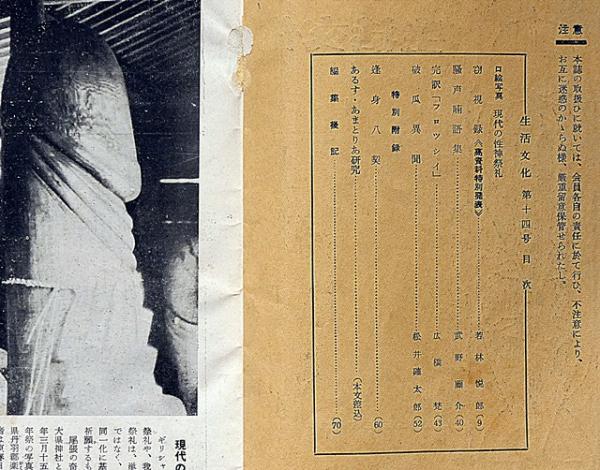 注意
本誌の取扱ひに就いては、会員各自の責任に於て行ひ、不注意により、
お互に迷惑のかゝらぬ様、厳重留意保管せられたし。
生活文化 第十四号 目次
口絵写真 現代の性神祭礼
窃視録《高資料特別発表》 若林悦郎 (9)
騒声喃語集 武野爾介 (40)
完訳「フロッシイ」 広橋梵 (43)
破瓜異聞 松井確太郎 (52)
特別附録
逢身八契 (60)
あるす・あまとりあ研究 (本文差込)
編集後記 (70)
現代の
ギリシャ
祭礼や、我
祭礼は、単
ではなく、
同一化に基
祈願するも
尾張の奇
大県神社と
年三月十五
年祭の写真
県丹羽郡楽